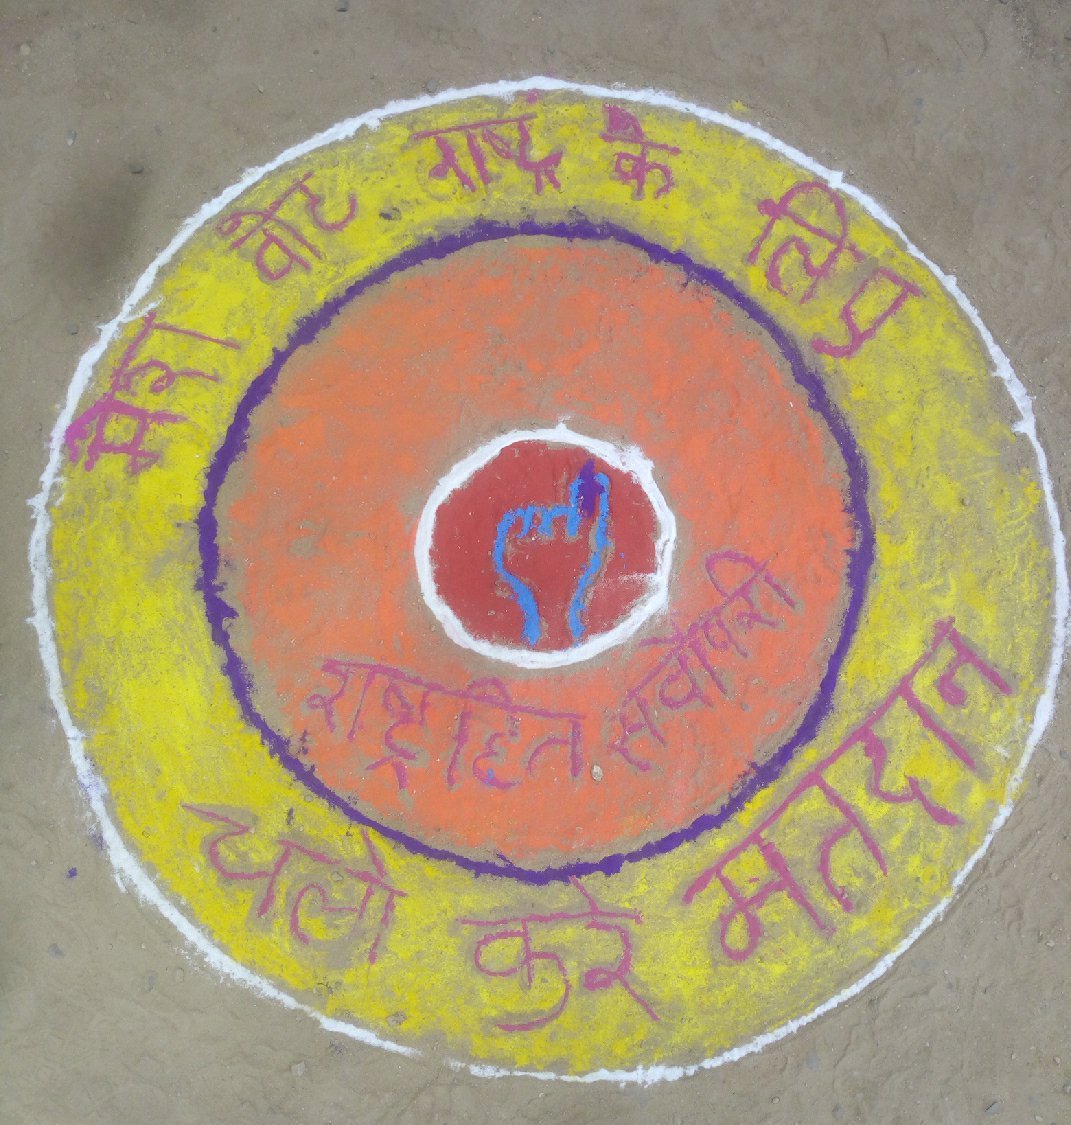 मेरा वोट राष्ट्रं के लिए
राष्ट्रहित सर्वोपरी
चलो करे मतदान